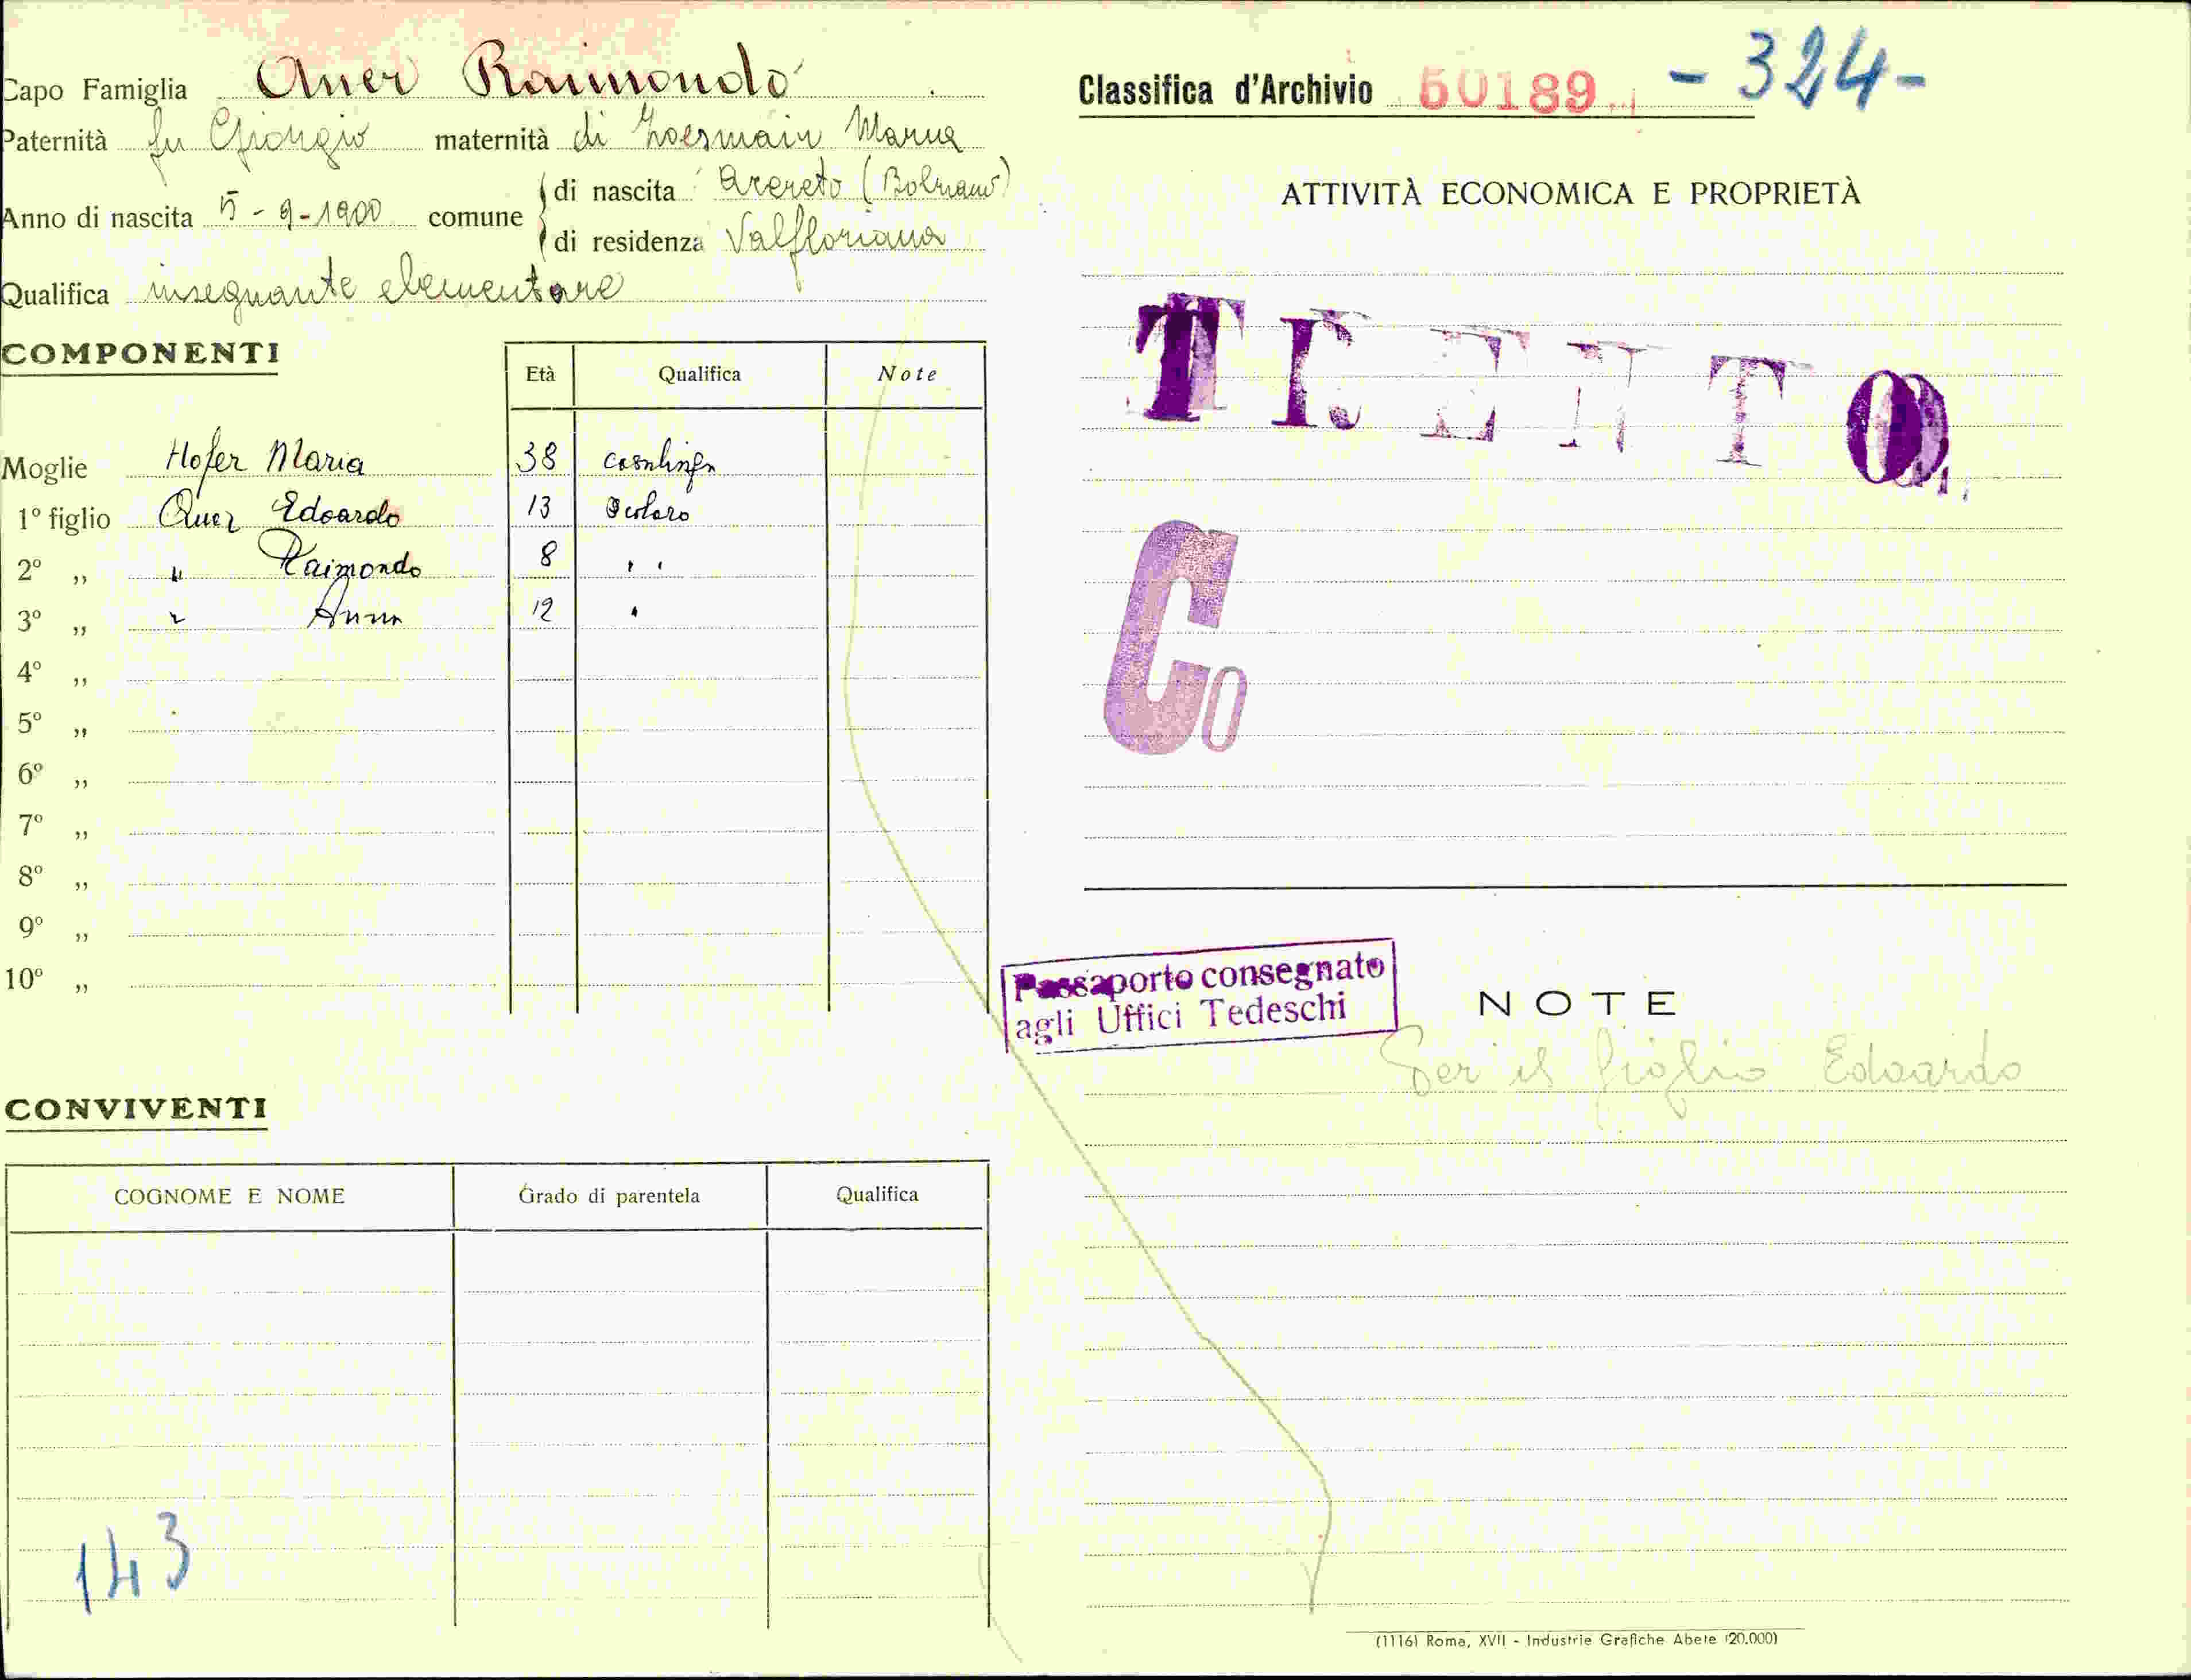 Capo Famiglia Auer Raimondo
Paternità fu Giorgio maternità di Maria
Anno di nascita 5-9-1900 comune di nascita (Bolzano)
di residenza Valfloriana
Qualifica insegnante elementare
COMPONENTI
Età Qualifica Note
Moglie Hofer Maria 38 casalinga
1º figlio Auer Edoardo 13 Scolaro
2º „ " Raimondo 8 " "
3º „ " Anna 12 "
4º „
5º „
6º „
7º „
8º „
9º „
10º „
CONVIVENTI
COGNOME E NOME Grado di parentela Qualifica
143
Classifica d'Archivio 50189 - 324 -
ATTIVITÀ ECONOMICA E PROPRIETÀ
TRENTO
Co
Passaporto consegnato
agli Uffici Tedeschi
NOTE
Per il figlio Edoardo
(1116) Roma, XVII - Industrie Grafiche Abete (20.000)